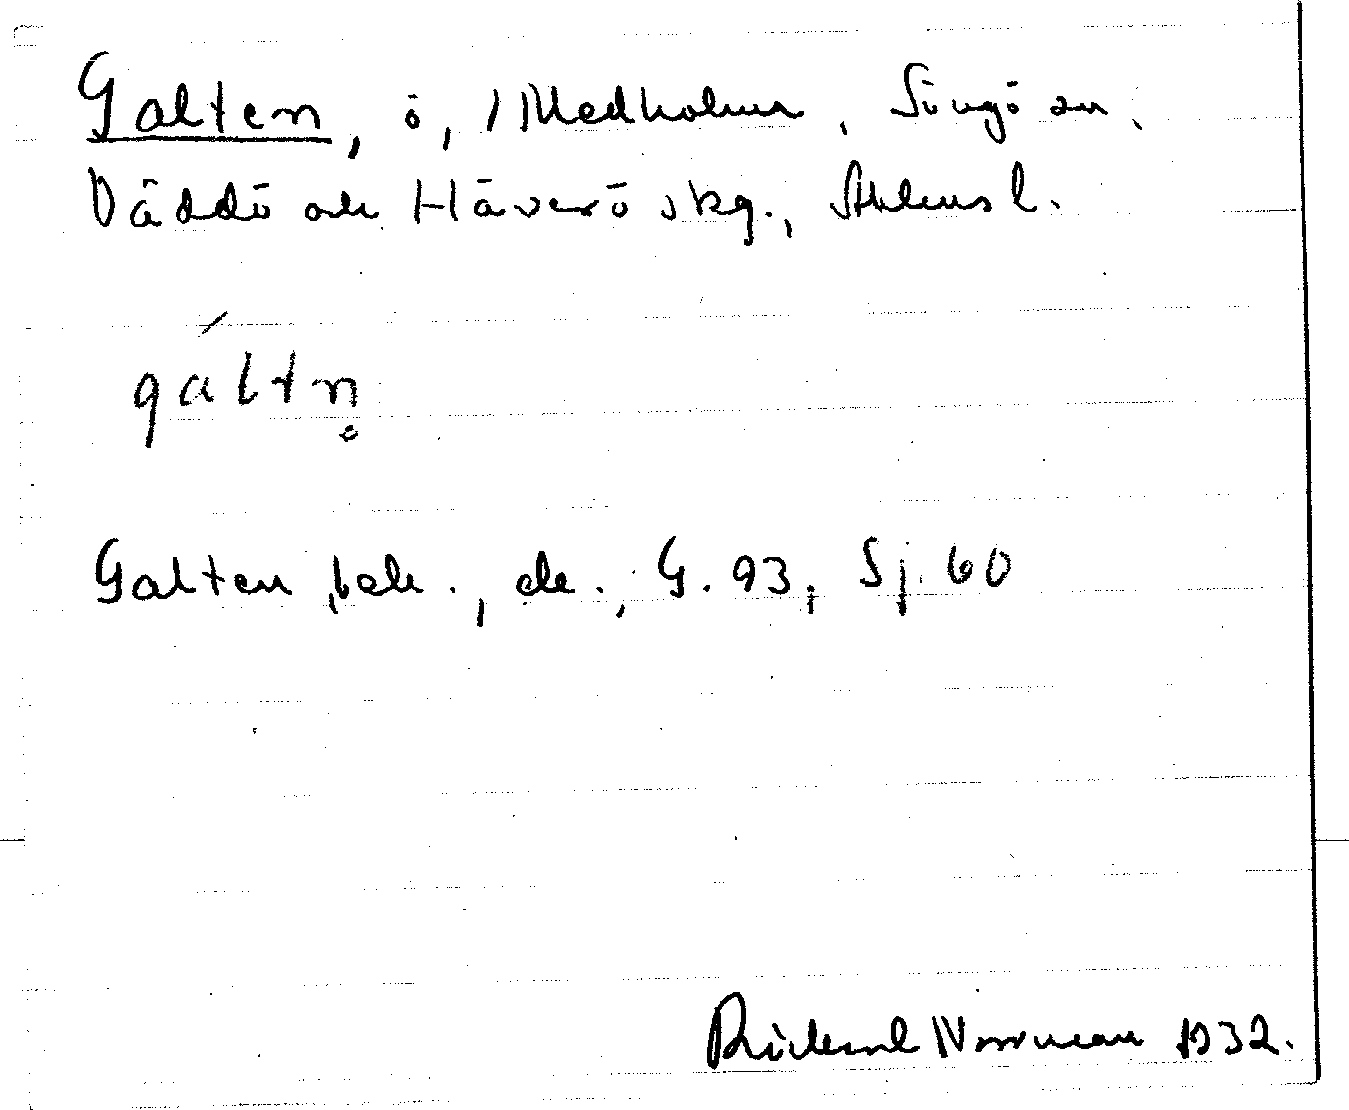 Galten, ö, Medholma, Singö sn,
Väddö och Häverö skg., Sthlms l.
gáltn̥
Galten, bek., de., G. 93, Sj. 60
Rickard Norrman 1932.